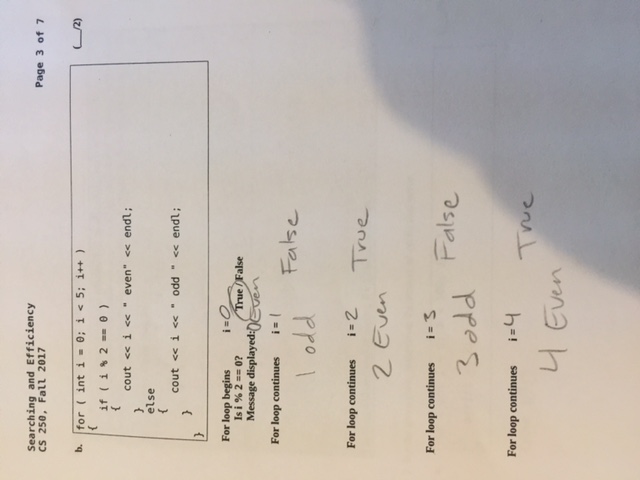 Searching and Efficiency
CS 250, Fall 2017
Page 3 of 7
b.
(__/2)
for ( int i = 0; i < 5; i++ )
{
if ( i % 2 == 0 )
{
cout << i << " even" << endl;
}
else
{
cout << i << " odd " << endl;
}
}
For loop begins i = 0
Is i % 2 == 0? True / False
Message displayed: 0 Even
For loop continues i = 1
False
1 odd
For loop continues i = 2
True
2 Even
For loop continues i = 3
False
3 odd
For loop continues i = 4
True
4 Even